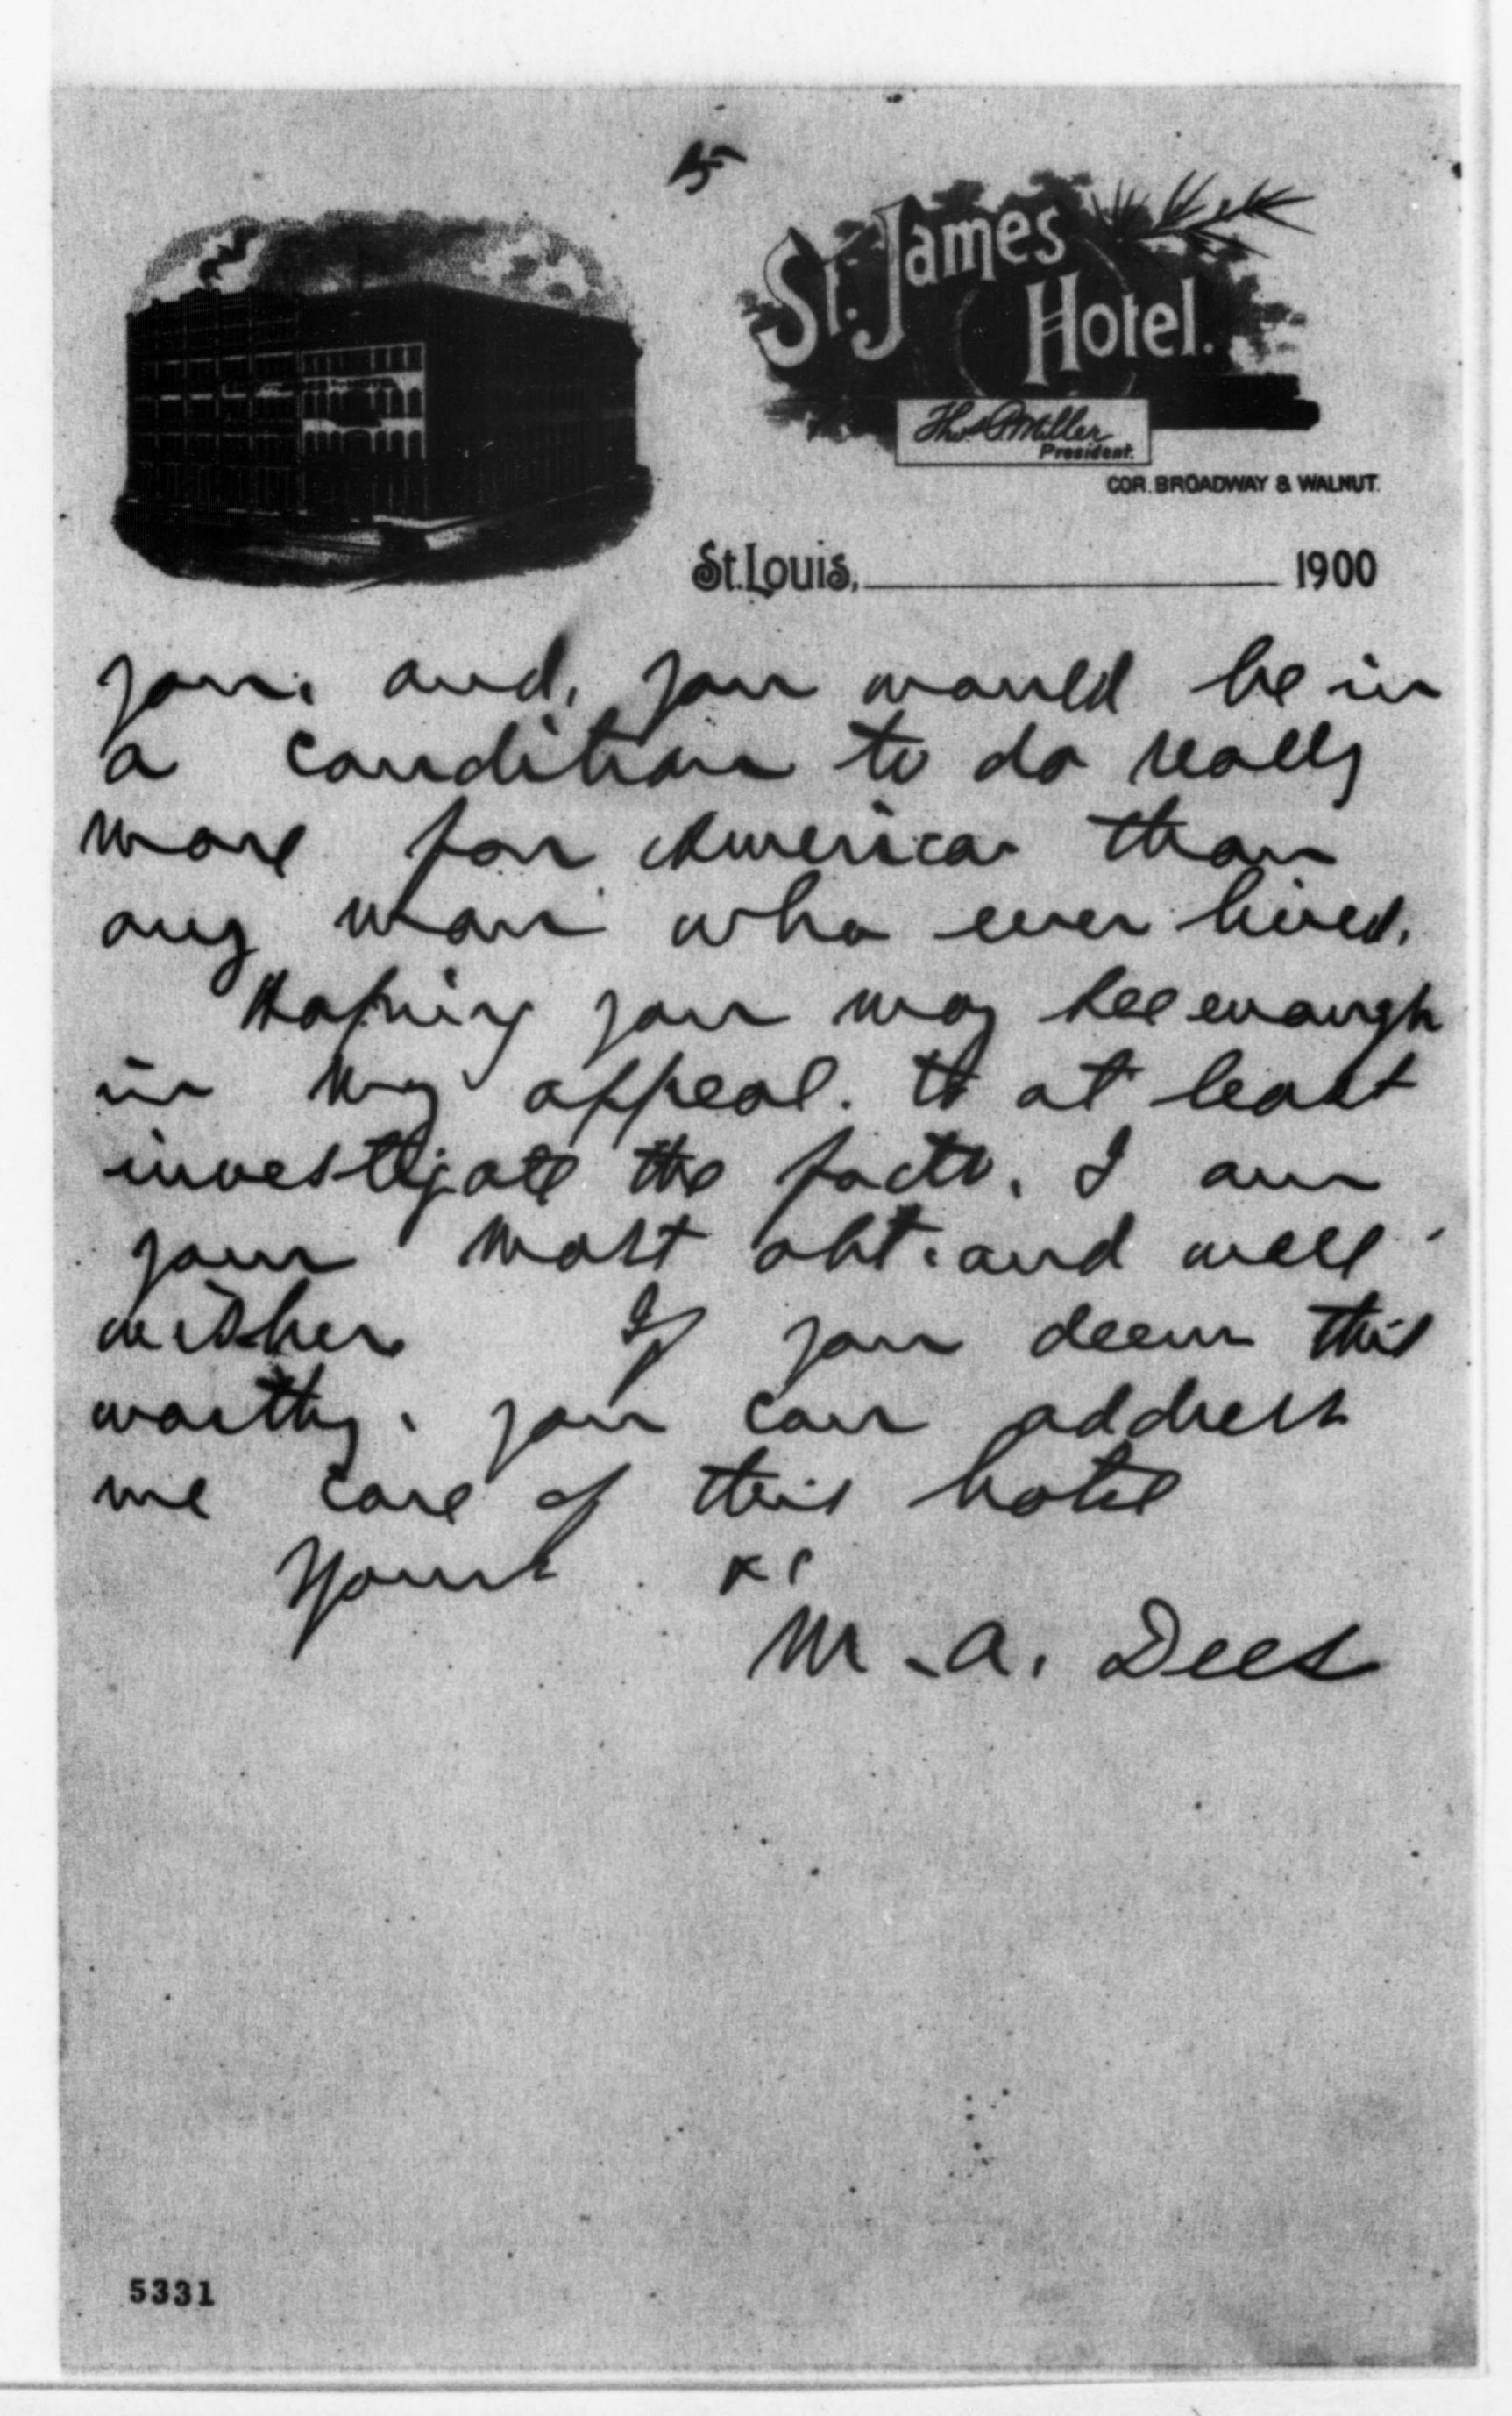 5
St. James
Hotel.
Thos P Miller
President.
COR. BROADWAY & WALNUT.
St. Louis, 1900
you. and, you would be in
a condition to do really
more for America than
any man who ever lived.
Hoping you may see enough
in my appeal. to at least
investigate the facts. I am
your most obt. and well
wisher If you deem this
worthy. you can address
me care of this hotel
Yours
M. A. Dees
5331